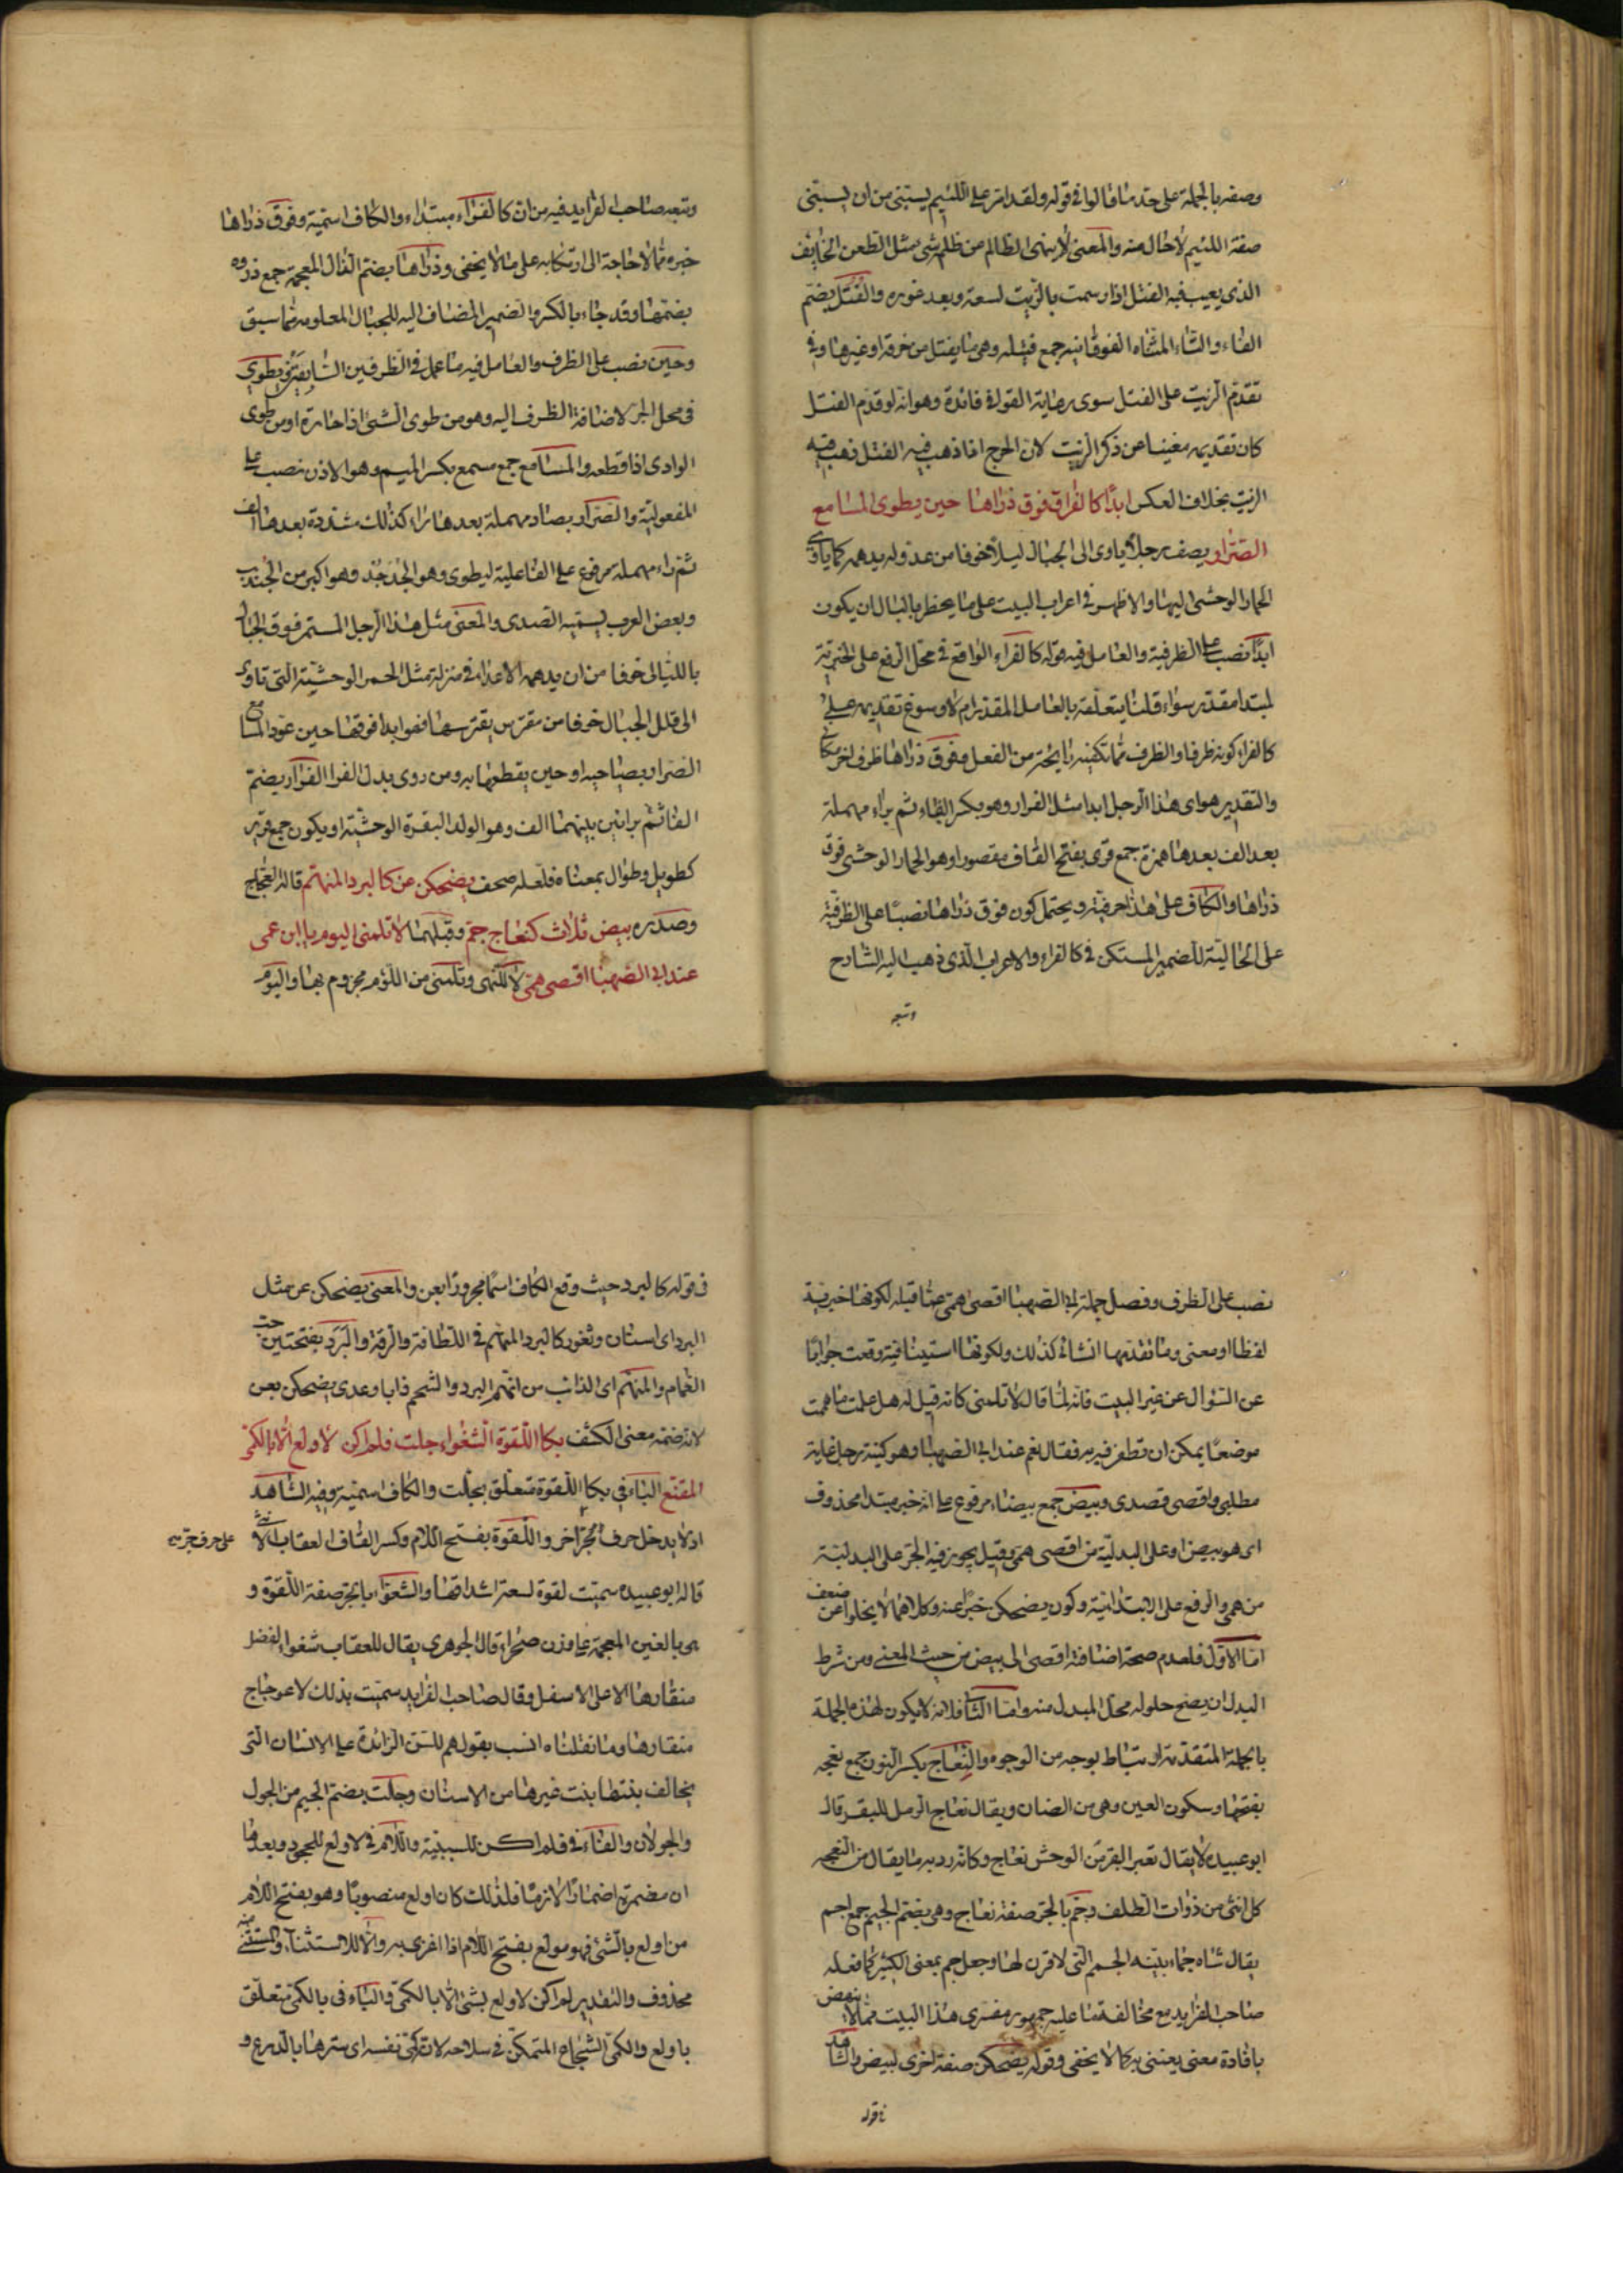 وصفه بالجملة على حد ما قالوا في قوله ولقد امر على اللئيم يسبني من ان يسبني
صفة اللئيم لا حال منه والمعنى لا ينهى الظالم من ظلم شيء مثل الطعن الجايف
الذي يغيب فيه الفتل اذا رسمت بالزيت لسعته وبعد غوره والفُتُل بضم
الفاء والتاء المثناة الفوقانية جمع فتيله وهي ما يفتل من خرقة او غيرها وفي
تقدم الزيت على الفتل سوى رعاية القوافي فائدة وهو انه لو قدم الفتل
كان تقديمه مغنيا عن ذكر الزيت لان الجرح اذا ذهب فيه الفتل ذهب فيه
الزيت بخلاف العكس ابدًا كالفراء فوق ذراها حين يطوى المسامع
الصرّار يصف رجلا ياوى الى الجبال ليلا خوفا من عدو له يدهمه كما ياوى
الحمار الوحشي اليها والاظهر في اعراب البيت على ما يخطر بالبال ان يكون
ابدًا نصب على الظرفية والعامل فيه قوله كالفراء الواقع في محل الرفع على الخبرية
لمبتدا مقدر سواء قلنا يتعلقه بالعامل المقدر ام لا وسوغ تقديمه على
كالفراء كونه ظرفا والظرف مما تكفيه رايحة من الفعل وفوق ذراها ظرف اخر مكاني
والتقدير هو اى هذا الرجل ابدا مثل الفراء وهو بكسر الفاء ثم براء مهملة
بعد الف بعدها همزة جمع فرى بفتح الفاء مقصورا وهو الحمار الوحشي فوق
ذراها والكاف على هذا حرفية ويحتمل كون فوق ذراها نصبًا على الظرفية
على الحالية للضمير المستكن في كالفراء والاعراب الذي ذهب اليه الشارح
وتبعه
وتبعه صاحب الفرايد فيه من ان كالفراء مبتداء والكاف اسمية وفوق ذراها
خبره مما لا حاجة الى ارتكابه على ما لا يخفى وذراها بضم الذال المعجمة جمع ذروه
بضمها وقد جاء بالكسر والضمير المضاف اليه للجبال المعلومة مما سبق
وحين نصب على الظرف والعامل فيه ما عمل في الظرفين السابقين ويطوي
في محل الجر لاضافة الظرف اليه وهو من طوى الشيء اذا حازه او من طوى
الوادى اذا قطعه والمسامع جمع مسمع بكسر الميم وهو الاذن نصب على
المفعولية والصرار بصاد مهملة بعدها راء كذلك مشددة بعدها الف
ثم راء مهملة مرفوع على الفاعلية ليطوى وهو الجدجد وهو اكبر من الجندب
وبعض العرب يسميه الصدى والمعنى مثل هذا الرجل المستمر فوق الجبال
بالليالى خوفا من ان يدهمه الاعداء في منزله مثل الحمر الوحشية التي تاوى
الى قلل الجبال خوفا من مفترس يفترسها فهو ابدا فوقها حين عود المسامع
الصرار بصياحه او حين يقطعها به ومن روى بدل الفرا الفرار بضم
الفاء ثم برائين بينهما الف وهو الولد البقرة الوحشية او يكون جمع فرير
كطويل وطوال بمعناه فلعله صحف يضحكن عن كالبرد المنهم قاله العجاج
وصدره بيض ثلاث كنعاج جم وقبلهما لا تلمنى اليوم يا ابن عمى
عند ابي الصهبا اقصى همي لا للنهى وتلمنى من اللوم مجزوم بها واليوم
نصب على الظرف وفصل جملة ابي الصهبا اقصى همي عما قبله لكونها خبرية
لفظا او معنى وما تقدمها انشاء كذلك ولكونها استينافية وقعت جوابًا
عن السؤال عن غير البيت فانه لما قال لا تلمنى كانه قيل له هل علمت ما هممت
موضعًا يمكن ان تظفر فيه به فقال نعم عند ابي الصهبا وهو كنية رجل غاية
مطلبي واقصى قصدى وبيض جمع بيضاء مرفوع على انه خبر مبتدا محذوف
اى هو بيض او على البدلية من اقصى همي وقيل يجوز فيه الجر على البدلية
من همي والرفع على الابتدائية وكون يضحكن خبرًا عنه وكلاهما لا يخلوا عن ضعف
اما الاول فلعدم صحة اضافة اقصى الى بيض من حيث المعنى ومن شرط
البدل ان يصح حلوله محل المبدل منه واما الثاني فلانه لا يكون لهذه الجملة
بالجملة المتقدمة ارتباط بوجه من الوجوه والنعاج بكسر النون جمع نعجه
بفتحها وسكون العين وهي من الضان ويقال نعاج الرمل للبقر قال
ابو عبيده لا يقال لغير البقر من الوحش نعاج وكانه رد به ما يقال من النعجه
كل انثى من ذوات الظلف وجم بالجر صفة نعاج وهي بضم الجيم جمع اجم
يقال شاه جماء بينه الجمم التي لا قرن لها وجعل جم بمعنى الكثير كما فعله
صاحب الفرايد مع مخالفة ما عليه جمهور مفسري هذا البيت مما لا ينهض
بافادة معنى يعتنى به كما لا يخفى وقوله يضحكن صفة اخرى لبيض والشاهد
في قوله
في قوله كالبرد حيث وقع الكاف اسمًا مجرورًا بعن والمعنى يضحكن عن مثل
البرد اى اسنان وثغور كالبرد المنهم في اللطافة والرقة والبَرَد بفتحتين حب
الغمام والمنهم اى الذائب من انهم البرد والشحم ذابا وعدى يضحكن بعن
لانه ضمنه معنى الكشف بكا اللقوة الشغواء جلت فلم اكن لاولع الا بالكمى
المقنع الباء في بكا اللقوة متعلق بجلت والكاف اسمية وفيه الشاهد
اذ لا يدخل حرف الجر الا على حرف جر اخر واللقوة بفتح اللام وكسر القاف العقاب الانثى
على حرف جر
قاله ابو عبيده سميت لقوة لسعة اشداقها والشغواء بالجر صفة اللقوة و
هي بالغين المعجمة على وزن صحراء قال الجوهرى يقال للعقاب شغواء لفضل
منقارها الاعلى الاسفل وقال صاحب الفرايد سميت بذلك لاعوجاج
منقارها وما نقلناه انسب بقولهم للسن الزائدة على الاسنان التي
يخالف بنتها بنت غيرها من الاسنان وجلت بضم الجيم من الجول
والجولان والفاء في فلم اكن للسببية واللام في لاولع للجحود وبعدها
ان مضمرة اضمارًا لازمًا فلذلك كان اولع منصوبًا وهو بفتح اللام
من اولع بالشئ فهو مولع بفتح اللام اذا اغرى به والا للاستثناء والمستثنى منه
محذوف والتقدير لم اكن لاولع بشئ الا بالكمى والباء في بالكمى متعلق
باولع والكمى الشجاع المتمكن في سلاحه لانه كمى نفسه اى سترها بالدرع و